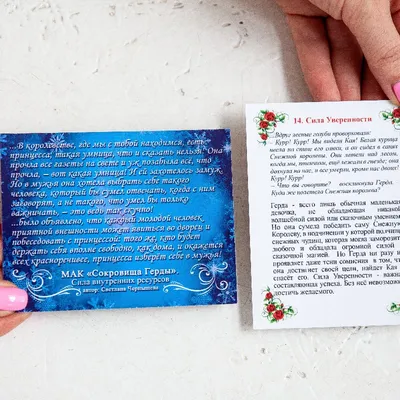 ...В королевстве, где мы с тобой находимся, есть
принцесса; такая умница, что и сказать нельзя! Она
прочла все газеты на свете и уж позабыла всё, что
прочла, – вот какая умница! И ей захотелось замуж.
Но в мужья она хотела выбрать себе такого
человека, который бы сумел отвечать, когда с ним
заговорят, а не такого, что умел бы только
важничать, – это ведь так скучно!
...было объявлено, что каждый молодой человек
приятной внешности может явиться во дворец и
побеседовать с принцессой; того же, кто будет
держать себя вполне свободно, как дома, и окажется
всех красноречивее, принцесса изберёт себе в мужья!
МАК «Сокровища Герды».
Сила внутренних ресурсов
автор: Светлана Чернышова
14. Сила Уверенности
Вдруг лесные голуби проворковали:
– Курр! Курр! Мы видели Кая! Белая курица
несла на спине его санки, а он сидел в санях
Снежной королевы. Они летели над лесом,
когда мы, птенчики, ещё лежали в гнезде; она
дохнула на нас, и все умерли, кроме нас двоих!
Курр! Курр!
– Что вы говорите? воскликнула Герда.
Куда же полетела Снежная королева?
Герда - всего лишь обычная маленькая
девочка, не обладающая никакой
волшебной силой или сказочным умением.
Но она сумела победить саму Снежную
Королеву, в подчинении у которой полчища
снежных чудищ, которая может заморозить
любого и обладала огромной силой и
сказочной магией. Но Герда ни разу не
проявляет даже тени сомнения в том, что
она достигнет своей цели, найдет Кая и
спасёт его. Сила Уверенности - важная
составляющая успеха. Без неё невозможно
достичь желаемого.